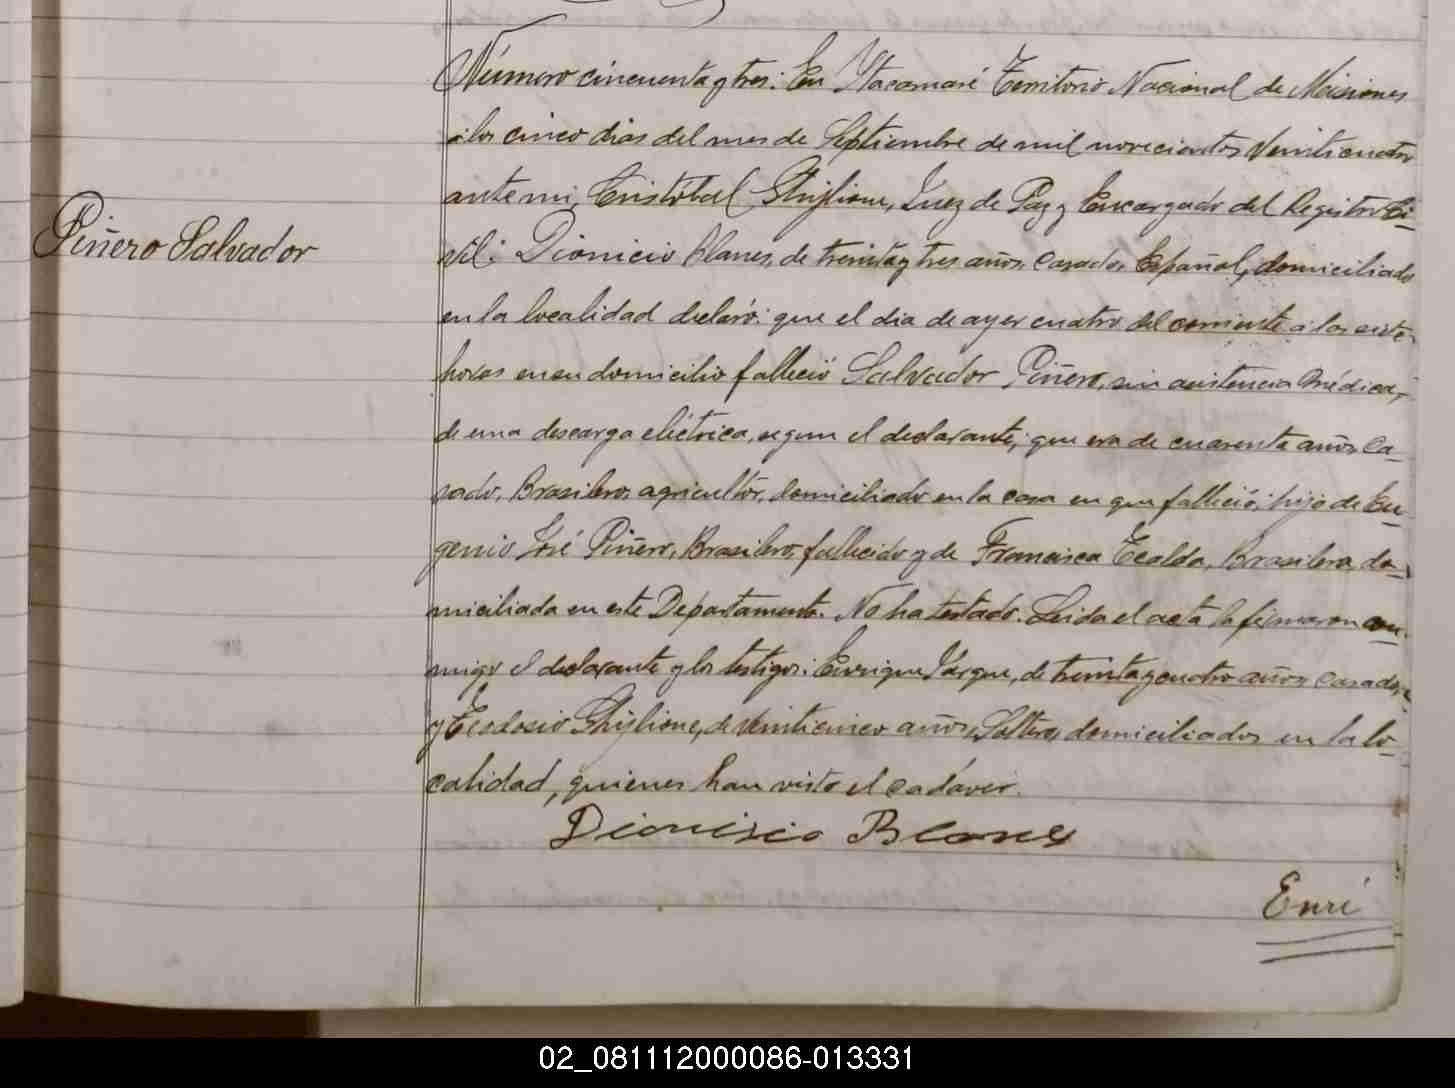 Número cincuenta y tres: En Ytacaruaré Territorio Nacional de Misiones
a los cinco dias del mes de Septiembre de mil novecientos veinticuatro
ante mi, Cristóbal Ghiglione, Juez de Paz y Encargado del Registro Ci-
Piñero Salvador
vil: Dionicio Blanes, de treinta y tres años, casado, Español, domiciliado
en la localidad declaró: que el dia de ayer cuatro del corriente a las siete
horas en su domicilio falleció Salvador Piñero, sin asistencia médica,
de una descarga eléctrica, segun el declarante; que era de cuarenta años, ca-
sado, Brasilero, agricultor, domiciliado en la casa en que falleció; hijo de Eu-
genio José Piñero, Brasilero, fallecido y de Francisca Ecalda, Brasilera, do-
miciliada en este Departamento. No ha testado. Leida el acta la firmaron con-
migo el declarante y los testigos: Enrique Vargue, de treinta y cuatro años, casado,
y Teodosio Ghiglione, de veinticinco años, Soltero, domiciliados en la lo-
calidad, quienes han visto el cadáver.
Dionisio Blanes
Enri
02_081112000086-013331